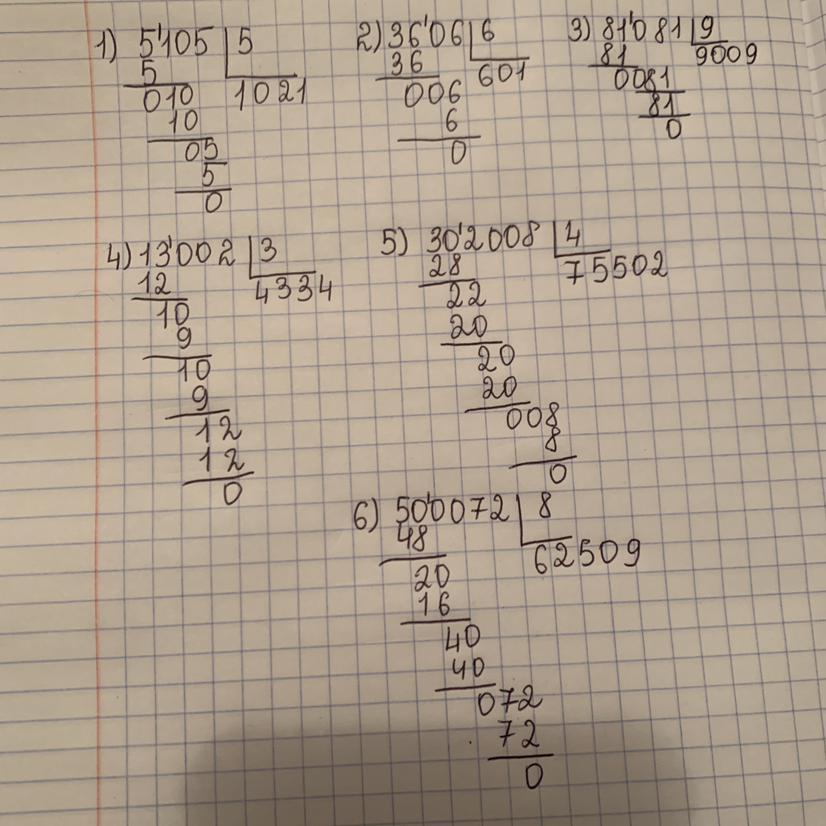 1) 5'105 5
5 1021
010
10
05
5
0
2) 36'06 6
36 601
006
6
0
3) 81'081 9
81 9009
0081
81
0
4) 13'002 3
12 4334
10
9
10
9
12
12
0
5) 30'2008 4
28 75502
22
20
20
20
008
8
0
6) 50'0072 8
48 62509
20
16
40
40
072
72
0